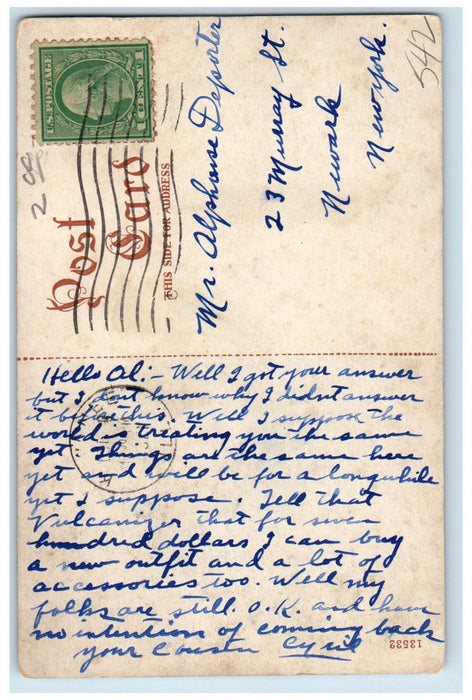 U.S. POSTAGE
1 CENT 1
Post
Card
THIS SIDE FOR ADDRESS
Mr. Alphonse Deporter
23 Murray St.
Newark
New york.
542
2
Hello Al:- Well I got your answer
but I dont know why I didnt answer
it before this. Well I suppose the
world is treating you the same
yet Things are the same here
yet and will be for a longwhile
yet I suppose. Tell that
Vulcanizer that for seven
hundred dollars I can buy
a new outfit and a lot of
accessories too. Well my
folks are still O.K. and have
no intention of coming back
your Cousin Cyril
13532